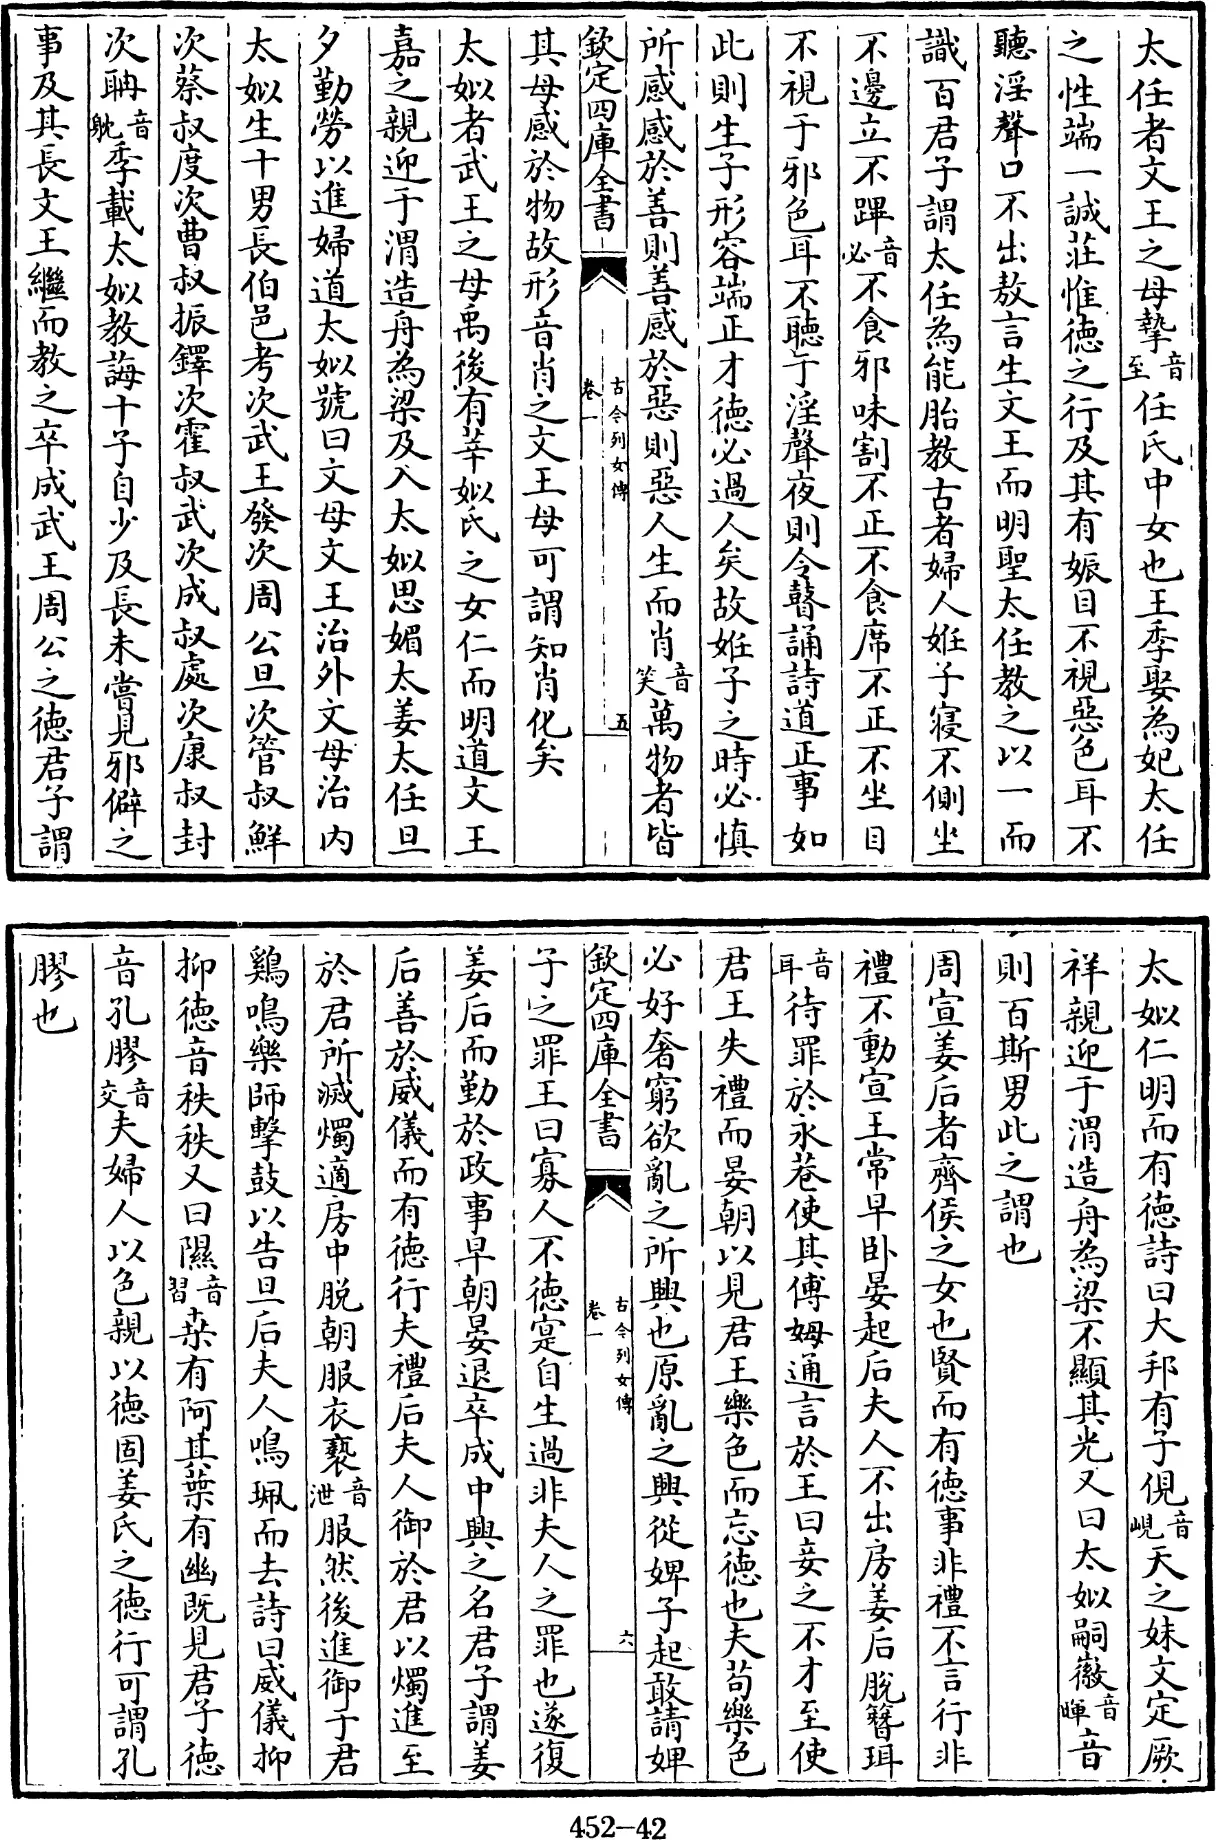 太任者文王之母摯音至任氏中女也王季娶為妃太任
之性端一誠莊惟徳之行及其有娠目不視惡色耳不
聽淫聲口不出敖言生文王而明聖太任教之以一而
識百君子謂太任為能胎教古者婦人姙子寝不側坐
不邊立不蹕音必不食邪味割不正不食席不正不坐目
不視于邪色耳不聽于淫聲夜則令瞽誦詩道正事如
此則生子形容端正才徳必過人矣故姙子之時必慎
所感感於善則善感於惡則惡人生而肖音笑萬物者皆
欽定四庫全書
古今列女傳
卷一
五
其母感於物故形音肖之文王母可謂知肖化矣
太姒者武王之母禹後有莘姒氏之女仁而明道文王
嘉之親迎于渭造舟為梁及入太姒思媚太姜太任旦
夕勤勞以進婦道太姒號曰文母文王治外文母治内
太姒生十男長伯邑考次武王發次周公旦次管叔鮮
次蔡叔度次曹叔振鐸次霍叔武次成叔處次康叔封
次聃音耽季載太姒教誨十子自少及長未嘗見邪僻之
事及其長文王繼而教之卒成武王周公之徳君子謂
太姒仁明而有徳詩曰大邦有子俔音峴天之妹文定厥
祥親迎于渭造舟為梁不顯其光又曰太姒嗣徽音暉音
則百斯男此之謂也
周宣姜后者齊侯之女也賢而有徳事非禮不言行非
禮不動宣王常早卧晏起后夫人不出房姜后脱簪珥
音耳待罪於永巷使其傅姆通言於王曰妾之不才至使
君王失禮而晏朝以見君王樂色而忘徳也夫苟樂色
必好奢窮欲亂之所興也原亂之興從婢子起敢請婢
欽定四庫全書
古今列女傳
卷一
六
子之罪王曰寡人不徳寔自生過非夫人之罪也遂復
姜后而勤於政事早朝晏退卒成中興之名君子謂姜
后善於威儀而有徳行夫禮后夫人御於君以燭進至
於君所滅燭適房中脱朝服衣褻音泄服然後進御于君
鷄鳴樂師擊鼓以告旦后夫人鳴珮而去詩曰威儀抑
抑徳音秩秩又曰隰音習桒有阿其葉有幽既見君子徳
音孔膠音交夫婦人以色親以徳固姜氏之徳行可謂孔
膠也
452-42